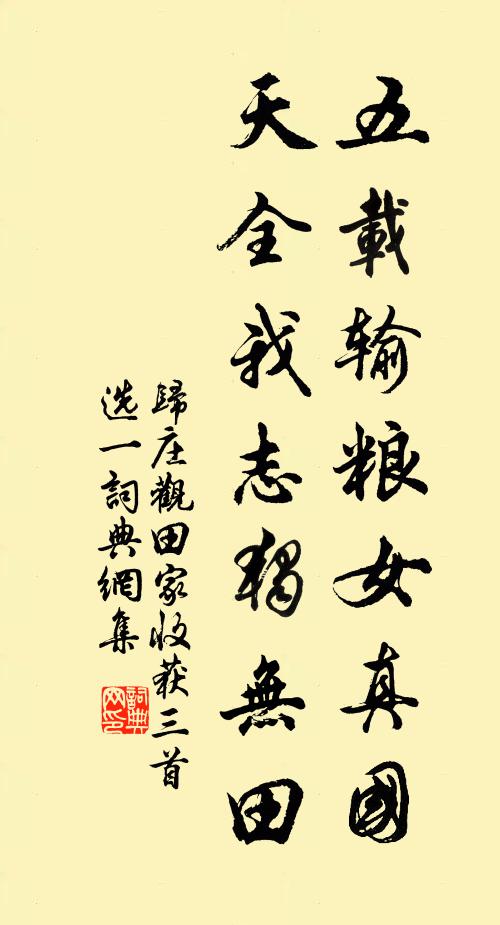 五載输粮女真國
天全我志獨無田
歸庄觀田家收获三首
选一詞典網集
詞典
网印